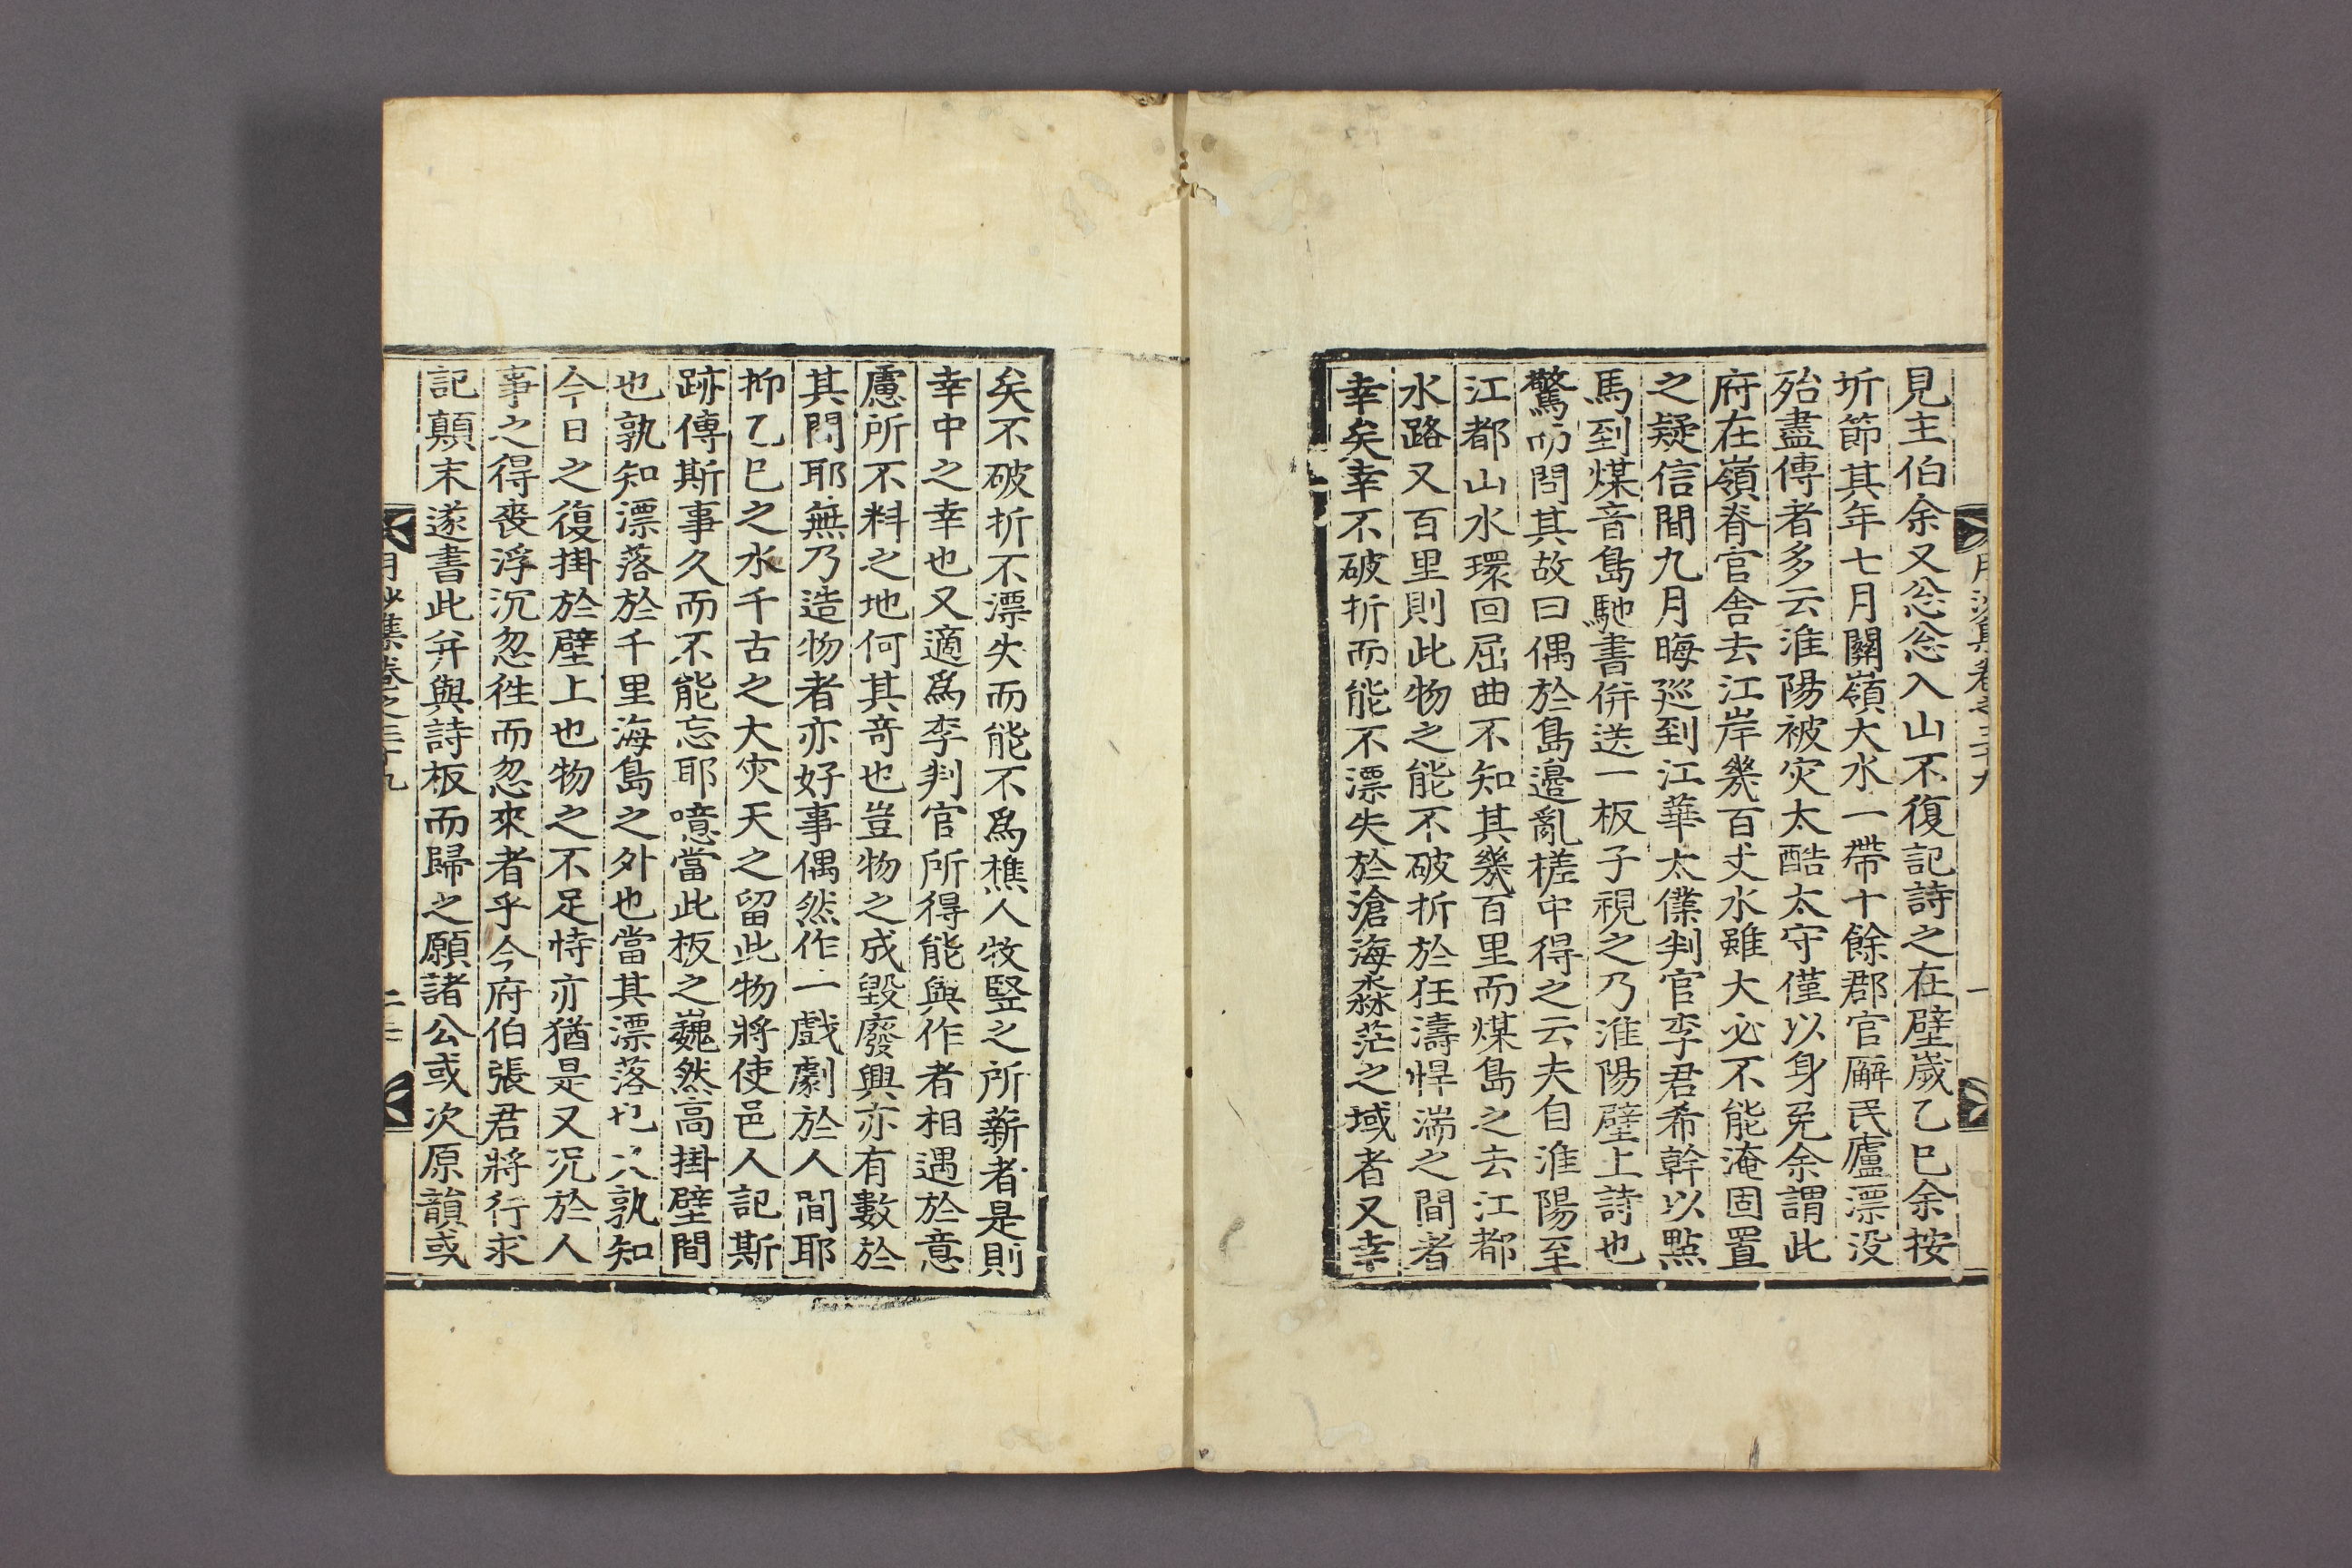 見主伯余又忩忩入山不復記詩之在壁歲乙巳余按
圻節其年七月關嶺大水一帶十餘郡官廨民廬漂没
殆盡傳者多云淮陽被灾太酷太守僅以身免余謂此
府在嶺脊官舎去江岸幾百丈水雖大必不能淹固置
之疑信間九月晦廵到江華太僕判官李君希幹以點
馬到煤音島馳書併送一板子視之乃淮陽壁上詩也
驚而問其故曰偶於島邊亂槎中得之云夫自淮陽至
江都山水環回屈曲不知其幾百里而煤島之去江都
水路又百里則此物之能不破折於狂濤悍湍之間者
幸矣幸不破折而能不漂失於滄海淼茫之域者又幸
矣不破折不漂失而能不爲樵人牧竪之所薪者是則
幸中之幸也又適爲李判官所得能與作者相遇於意
慮所不料之地何其奇也豈物之成毀廢興亦有數於
其間耶無乃造物者亦好事偶然作一戲劇於人間耶
抑乙巳之水千古之大灾天之留此物將使邑人記斯
跡傳斯事久而不能忘耶噫當此板之巍然高掛壁間
也孰知漂落於千里海島之外也當其漂落也又孰知
今日之復掛於壁上也物之不足恃亦猶是又况於人
事之得喪浮沉忽徃而忽來者乎今府伯張君將行求
記顛末遂書此并與詩板而歸之願諸公或次原韻或
月沙集卷之三十九